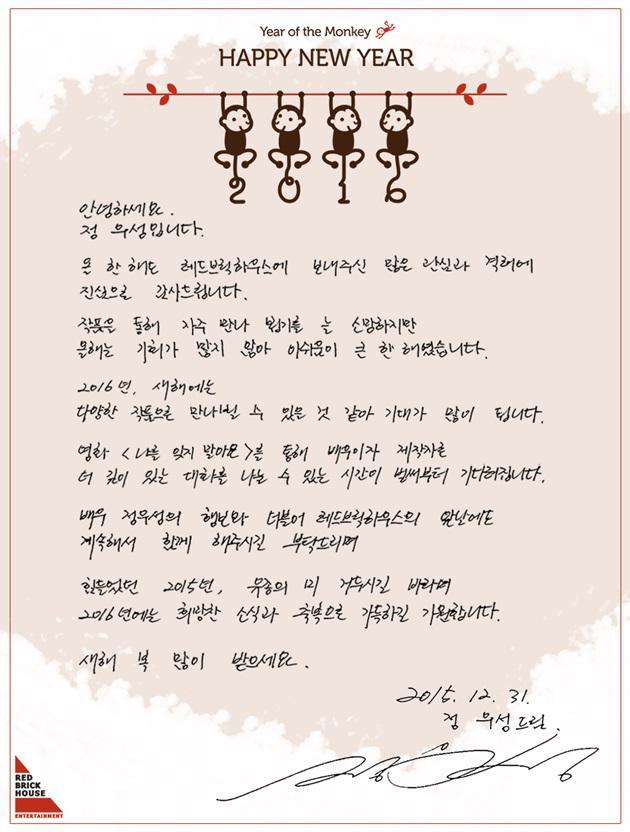 Year of the Monkey
HAPPY NEW YEAR
2016
안녕하세요.
정 우성입니다.
올 한 해도 레드브릭하우스에 보내주신 많은 관심과 격려에
진심으로 감사드립니다.
작품을 통해 자주 만나 뵙기를 늘 소망하지만
올해는 기회가 많지 않아 아쉬움이 큰 한 해였습니다.
2016년, 새해에는
다양한 작품으로 만나뵐 수 있을 것 같아 기대가 많이 됩니다.
영화 <나를 잊지 말아요>를 통해 배우이자 제작자로
더 깊이 있는 대화를 나눌 수 있는 시간이 벌써부터 기다려집니다.
배우 정우성의 행보와 더불어 레드브릭하우스의 앞날에도
계속해서 함께 해주시길 부탁드리며
힘들었던 2015년, 유종의 미 거두시길 바라며
2016년에는 희망찬 소식과 축복으로 가득하길 기원합니다.
새해 복 많이 받으세요.
2015. 12. 31.
정 우성드림.
RED
BRICK
HOUSE
ENTERTAINMENT